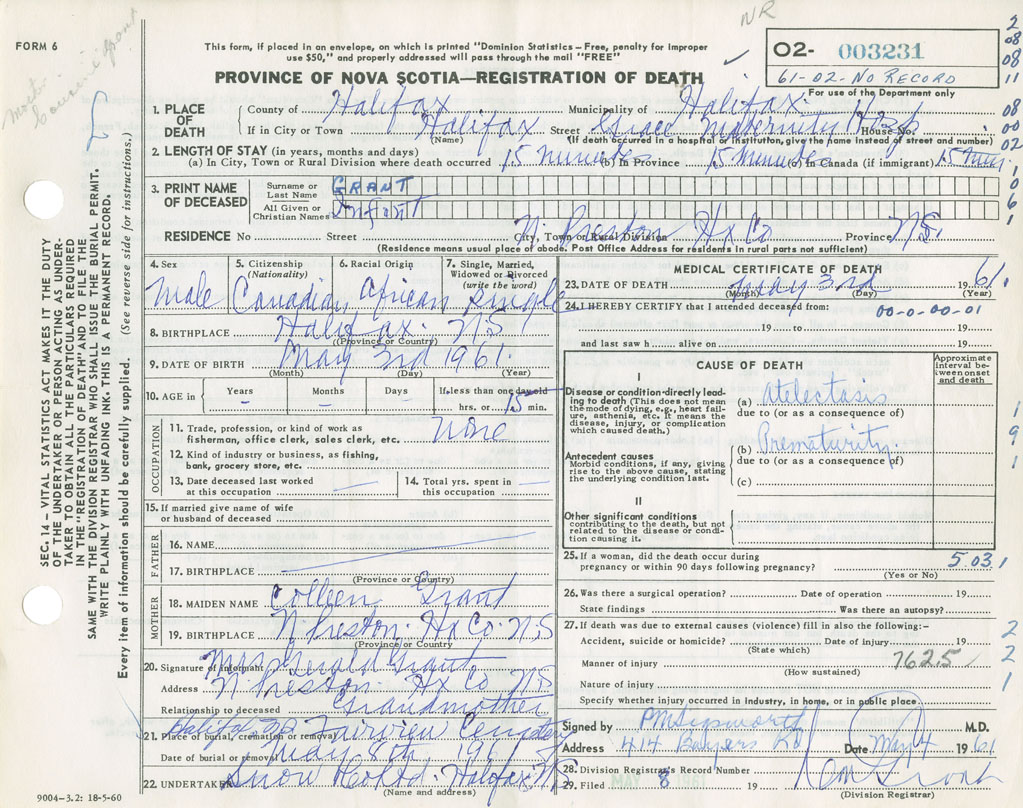 NR
FORM 6
This form, if placed in an envelope, on which is printed "Dominion Statistics – Free, penalty for improper
use $50," and properly addressed will pass through the mail "FREE"
PROVINCE OF NOVA SCOTIA—REGISTRATION OF DEATH
02- 003231
61-02-NO RECORD
For use of the Department only
1. PLACE OF DEATH
County of Halifax Municipality of Halifax
If in City or Town Halifax (Name) Street Grace Maternity Hosp House No.
(If death occurred in a hospital or institution, give the name instead of street and number)
2. LENGTH OF STAY (in years, months and days)
(a) In City, Town or Rural Division where death occurred 15 minutes (b) In Province 15 minutes (c) In Canada (if immigrant) 15 mins
3. PRINT NAME OF DECEASED
Surname or Last Name GRANT
All Given or Christian Names Infant
RESIDENCE No Street City, Town or Rural Division N. Preston Hx Co Province N.S.
(Residence means usual place of abode. Post Office Address for residents in rural parts not sufficient)
4. Sex Male
5. Citizenship (Nationality) Canadian
6. Racial Origin African
7. Single, Married, Widowed or Divorced (write the word) Single
8. BIRTHPLACE Halifax N.S
(Province or Country)
9. DATE OF BIRTH May 3rd 1961
(Month) (Day) (Year)
10. AGE in Years – Months – Days – If less than one day old hrs. or 15 min.
OCCUPATION
11. Trade, profession, or kind of work as fisherman, office clerk, sales clerk, etc. None
12. Kind of industry or business, as fishing, bank, grocery store, etc. —
13. Date deceased last worked at this occupation —
14. Total yrs. spent in this occupation —
15. If married give name of wife or husband of deceased
FATHER
16. NAME
17. BIRTHPLACE
(Province or Country)
MOTHER
18. MAIDEN NAME Colleen Grant
19. BIRTHPLACE N. Preston. Hx Co. N.S
(Province or Country)
20. Signature of informant Mrs Gerald Grant
Address N Preston Hx Co N.S
Relationship to deceased Grandmother
21. Place of burial, cremation or removal Halifax Fairview Cemetery
Date of burial or removal May 8th 1961
22. UNDERTAKER Snow Co Ltd. Halifax N.S
(Name and address)
9004-3.2: 18-5-60
MEDICAL CERTIFICATE OF DEATH
23. DATE OF DEATH May 3rd 1961
(Month) (Day) (Year)
24. I HEREBY CERTIFY that I attended deceased from: 00-0-00-01
19 to 19
and last saw h alive on 19
CAUSE OF DEATH
Approximate interval between onset and death
I
Disease or condition directly leading to death (This does not mean the mode of dying, e.g., heart failure, asthenia, etc. It means the disease, injury, or complication which caused death.)
(a) Atelectasis
due to (or as a consequence of)
Antecedent causes
Morbid conditions, if any, giving rise to the above cause, stating the underlying condition last.
(b) Prematurity
due to (or as a consequence of)
(c)
II
Other significant conditions
contributing to the death, but not related to the disease or condition causing it.
25. If a woman, did the death occur during pregnancy or within 90 days following pregnancy? 5.03
(Yes or No)
26. Was there a surgical operation? Date of operation 19
State findings Was there an autopsy?
27. If death was due to external causes (violence) fill in also the following:-
Accident, suicide or homicide? Date of injury 19
(State which)
Manner of injury 7625
(How sustained)
Nature of injury
Specify whether injury occurred in industry, in home, or in public place.
Signed by M.D.
Address 414 Bayers Rd Date May 4 1961
28. Division Registrar's Record Number
29. Filed MAY 8 1961 19
(Division Registrar)
SEC. 14 – VITAL STATISTICS ACT MAKES IT THE DUTY
OF THE UNDERTAKER OR PERSON ACTING AS UNDER-
TAKER TO OBTAIN ALL THE PARTICULARS REQUIRED
IN THE "REGISTRATION OF DEATH" AND TO FILE THE
SAME WITH THE DIVISION REGISTRAR WHO SHALL ISSUE THE BURIAL PERMIT.
WRITE PLAINLY WITH UNFADING INK. THIS IS A PERMANENT RECORD.
Every item of information should be carefully supplied. (See reverse side for instructions.)
2
08
08
11
08
00
02
1
0
6
1
1
9
1
1
2
2
1